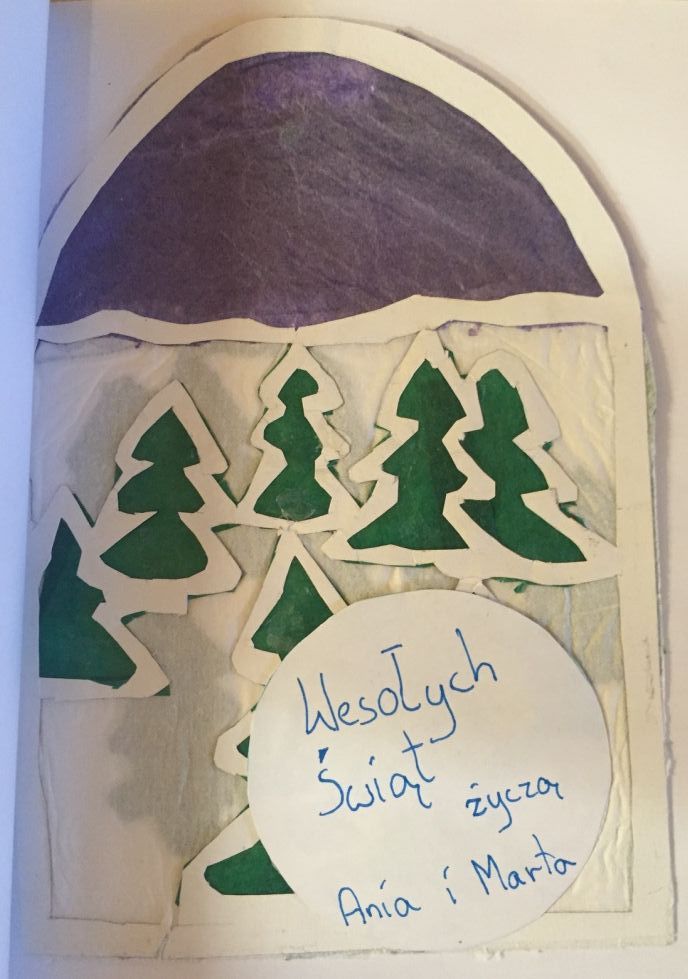 Wesołych
Świąt
życzą
Ania i Marta